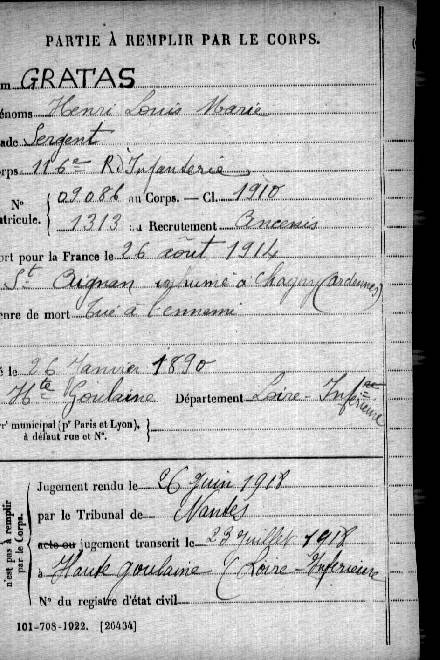 PARTIE À REMPLIR PAR LE CORPS.
m GRATAS
énoms Henri Louis Marie
ade Sergent
orps 116e R. d'Infanterie
N° 09086 au Corps. — Cl. 1910
atricule. 1313 au Recrutement Ancenis
ort pour la France le 26 août 1914
St Aignan inhumé à Chagny (Ardennes)
enre de mort Tué à l'ennemi
é le 26 Janvier 1890
Hte Goulaine Département Loire-Inférieure
rr' municipal (pr Paris et Lyon),
à défaut rue et N°.
Jugement rendu le 26 Juin 1918
par le Tribunal de Nantes
acte ou jugement transcrit le 23 Juillet 1918
à Haute Goulaine (Loire-Inférieure
N° du registre d'état civil
n'est pas à remplir
par le Corps.
101-708-1922. [26434]